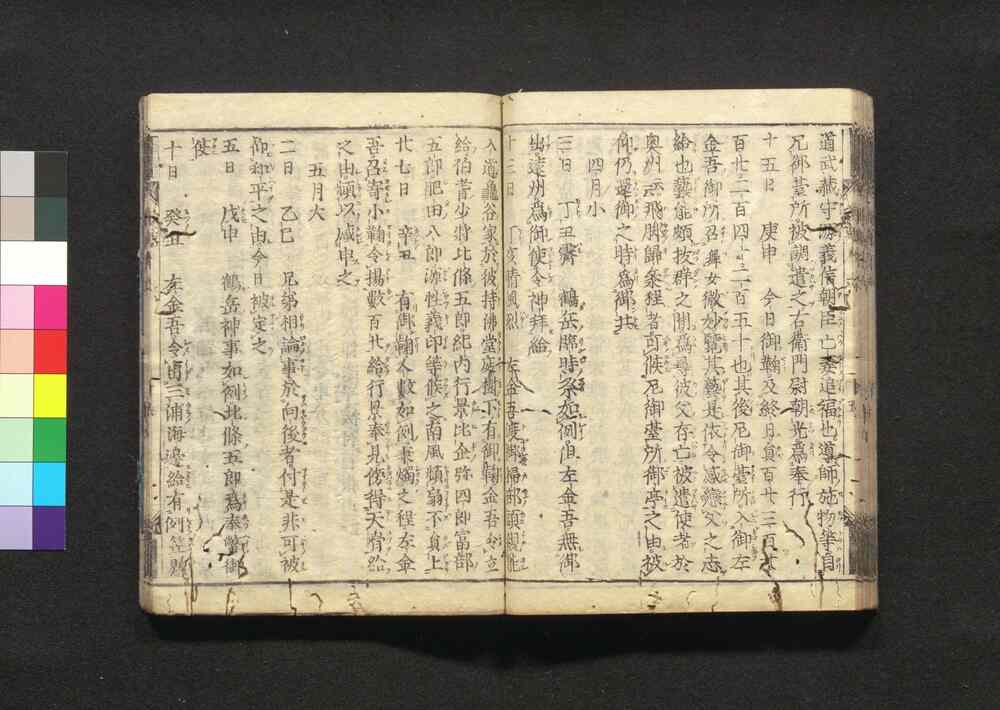 道武蔵守源義信朝臣亡妻追福也導師施物等自
尼御臺所被調遣之右衛門尉朝光為奉行
十五日 庚申 今日御鞠及終日員百廿三百廿
百廿二百四十二百五十也其後尼御臺所入御左
金吾御所召舞女微妙覧其藝是依令感戀父之志
給也藝能頗抜群之間為尋彼父存亡被遣使者於
奥州云飛脚歸参程者可候尼御臺所御亭之由被
仰仍還御之時為御共
四月小
三日 丁丑霽 鶴岳臨時祭如例但左金吾無御
出遠州為御使令神拝給
十三日 丁亥晴風烈 左金吾渡御掃部頭親能
入道亀谷家於彼持佛堂庭園小有御鞠金吾令立
給伯耆少将北條五郎紀内行景比企弥四郎富部
五郎肥田八郎源性義印等候之南風頻扇不員上
廿七日 辛丑 有御鞠人数如例秉燭之程左金
吾召寄小鞠令揚數百其給行景奉見傍得天骨給
之由頻以感申之
五月大
二日 乙巳 兄弟相論事於向後者付是非可被
仰和平之由今日被定之
五日 戊申 鶴岳神事如例北條五郎為奉幣御
使
十日 癸丑 左金吾令向三浦海邊給有例笠懸